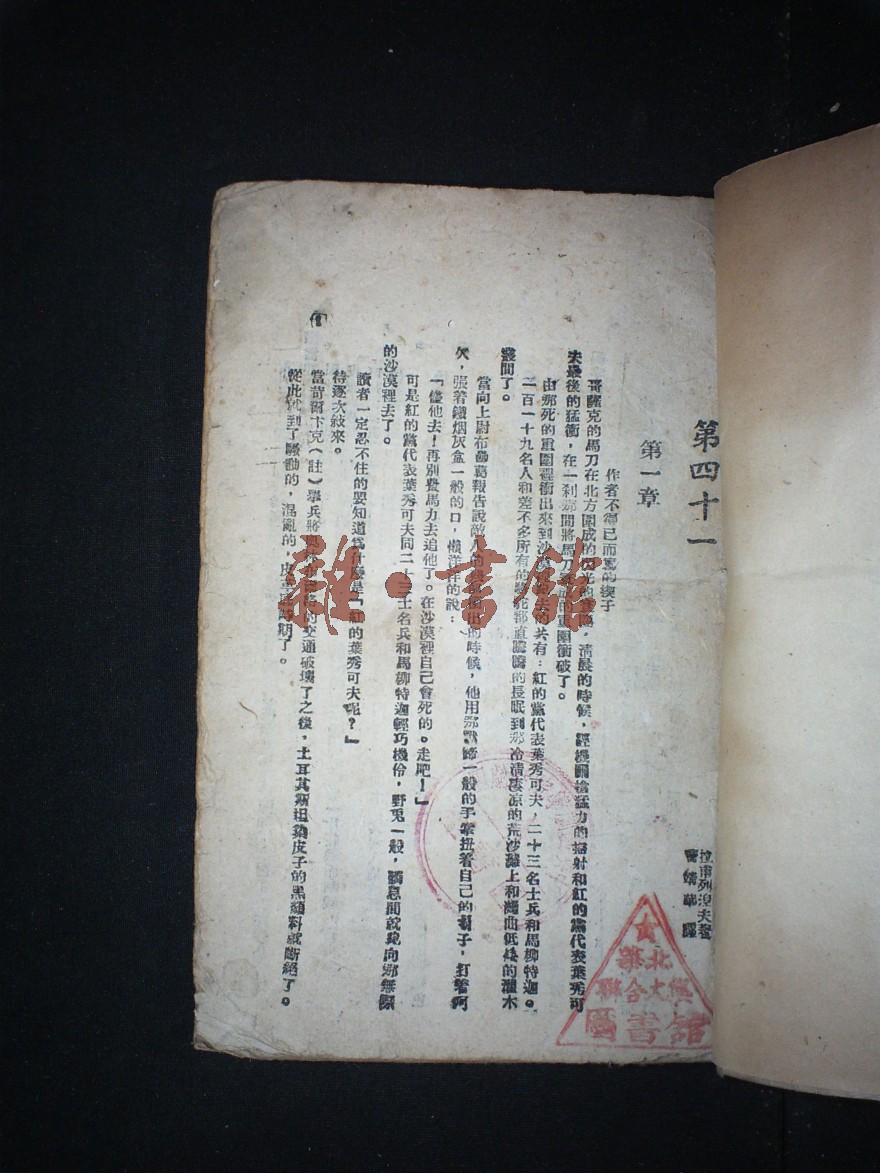 第四十一
拉甫列涅夫著
曹靖華譯
第一章
作者不得已而寫的楔子
哥薩克的馬刀在北方圍成的閃光的，清晨的時候，經機關槍猛力的掃射和紅的黨代表葉秀可
夫最後的猛衝，在一刹那間將馬刀的重圍衝破了。
由那死的重圍裡衝出來到沙漠的共有：紅的黨代表葉秀可夫，二十三名士兵和馬柳特迦。
二百一十九名人和差不多所有的駝都直騰騰的長眠到那冷清凄凉的荒沙灘上和灣曲低矮的灌木
叢間了。
當向上尉布彝葛報告說敵人的時候，他用那一般的手掌扭着自己的鬍子，打着呵
欠，張着鐵烟灰盒一般的口，懶洋洋的說：
「儘他去！再別費馬力去追他了。在沙漠裡自己會死的。走吧！」
可是紅的黨代表葉秀可夫同二十三士名兵和馬柳特迦輕巧機伶，野兎一般，瞬息間就跑向那無際
的沙漠裡去了。
讀者一定忍不住的要知道爲什麼是「紅的葉秀可夫呢？」
待逐次敍來。
當苛爾卡克（註）舉兵將的交通破壞了之後，土耳其斯坦染皮子的黑顏料就斷絕了。
從此就到了騷動的，混亂的，皮時期了。
二
華北
聯合大學
圖書館
雜·書館